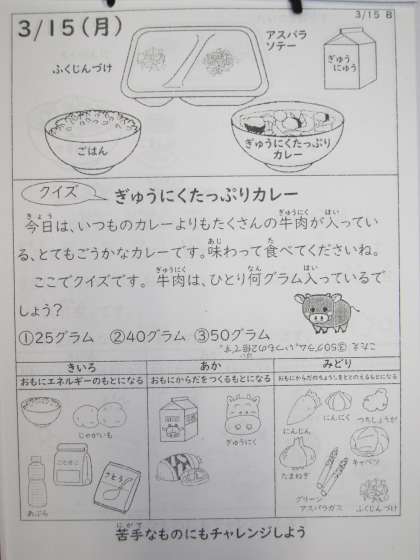 3/15 B
3/15(月)
アスパラ
ソテー
ふくじんづけ
ぎゅう
にゅう
ごはん
ぎゅうにくたっぷり
カレー
クイズ
ぎゅうにくたっぷりカレー
今日は、いつものカレーよりもたくさんの牛肉が入ってい
る、とてもごうかなカレーです。味わって食べてくださいね。
ここでクイズです。牛肉は、ひとり何グラム入っているで
しょう?
①25グラム ②40グラム ③50グラム
こたえ ③50グラム。いつもの2倍です。
きいろ
おもにエネルギーのもとになる
あか
おもにからだをつくるもとになる
みどり
おもにからだのちょうしをととのえるもとになる
じゃがいも
こむぎこ
さとう
あぶら
ぎゅうにく
にんじん
にんにく
つちしょうが
たまねぎ
キャベツ
グリーン
アスパラガス
ふくじんづけ
苦手なものにもチャレンジしよう